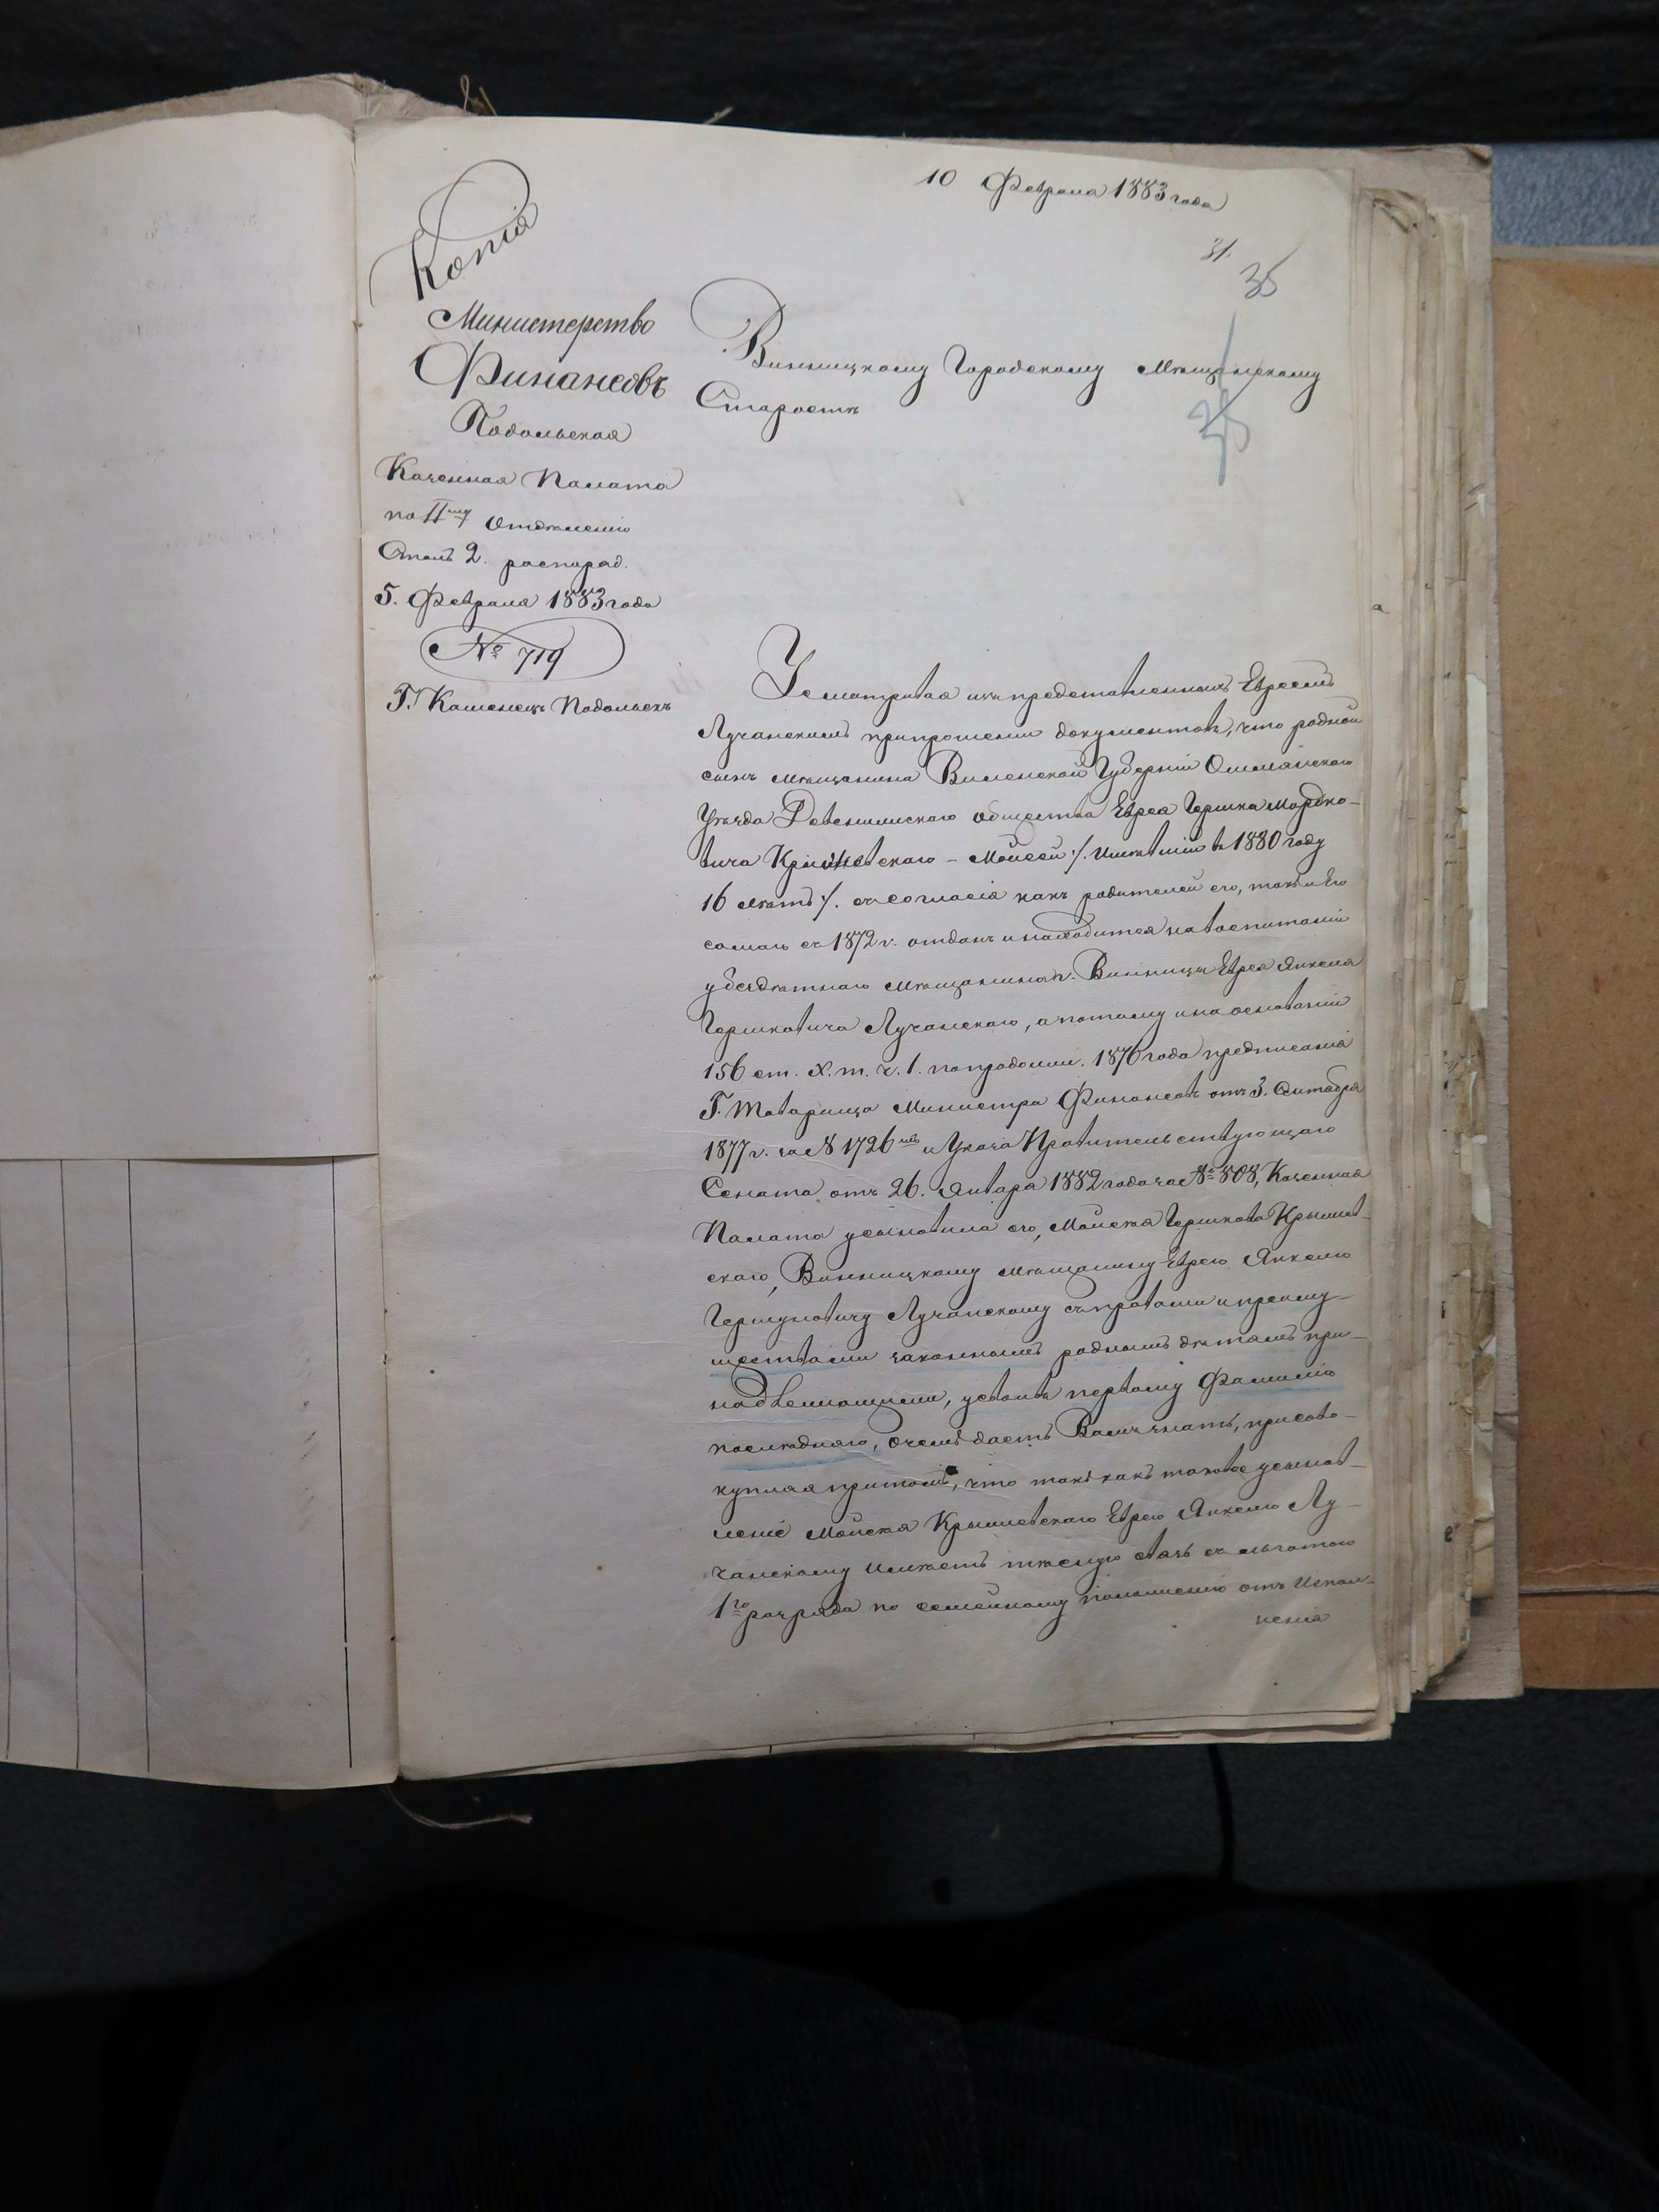 10 Февраля 1883 года
31.
35
Копія
Министерство
Финансовъ
Подольская
Казенная Палата
по II му Отдѣленію
Столъ 2. распоряд.
5. Февраля 1883 года
№ 719
Г. Каменецъ Подольскъ
Винницкому Городскому Мѣщанскому
Старостѣ
Усматривая изъ представленныхъ Евреемъ
Лучанскимъ при прошеніи документовъ, что родной
сынъ мѣщанина Виленской Губерніи Ошмянскаго
Уѣзда Девенишскаго общества Еврея Гершка Мордко-
вича Крышевскаго – Мойсей /. имѣвшій въ 1880 году
16 лѣтъ /. съ согласія какъ родителей его, такъ и Его
самаго съ 1872 г. отданъ и находится на воспитаніи
у бездѣтнаго мѣщанина г. Винницы Еврея Янкеля
Гершковича Лучанскаго, а потому и на основаніи
156 ст. X. т. ч. 1. по продолж. 1876 года предписанія
Г. Товарища Министра Финансовъ отъ 3. Октября
1877 г. за № 1726 и Указа Правительствующаго
Сената отъ 26. Января 1882 года за № 808, Казенная
Палата усыновила его, Мойсея Гершкова Крышев-
скаго, Винницкому мѣщанину Еврею Янкелю
Гершковичу Лучанскому съ правами и преиму-
ществами законнымъ роднымъ дѣтямъ при-
надлежащими, усвоивъ первому Фамилію
послѣдняго, о чемъ даетъ Вамъ знать, присово-
купляя при томъ, что такъ какъ таковое усынов-
леніе Мойсея Крышевскаго Еврею Янкелю Лу-
чанскому имѣетъ тѣсную связь съ льготою
1го разряда по семейному положенію отъ испол-
ненія